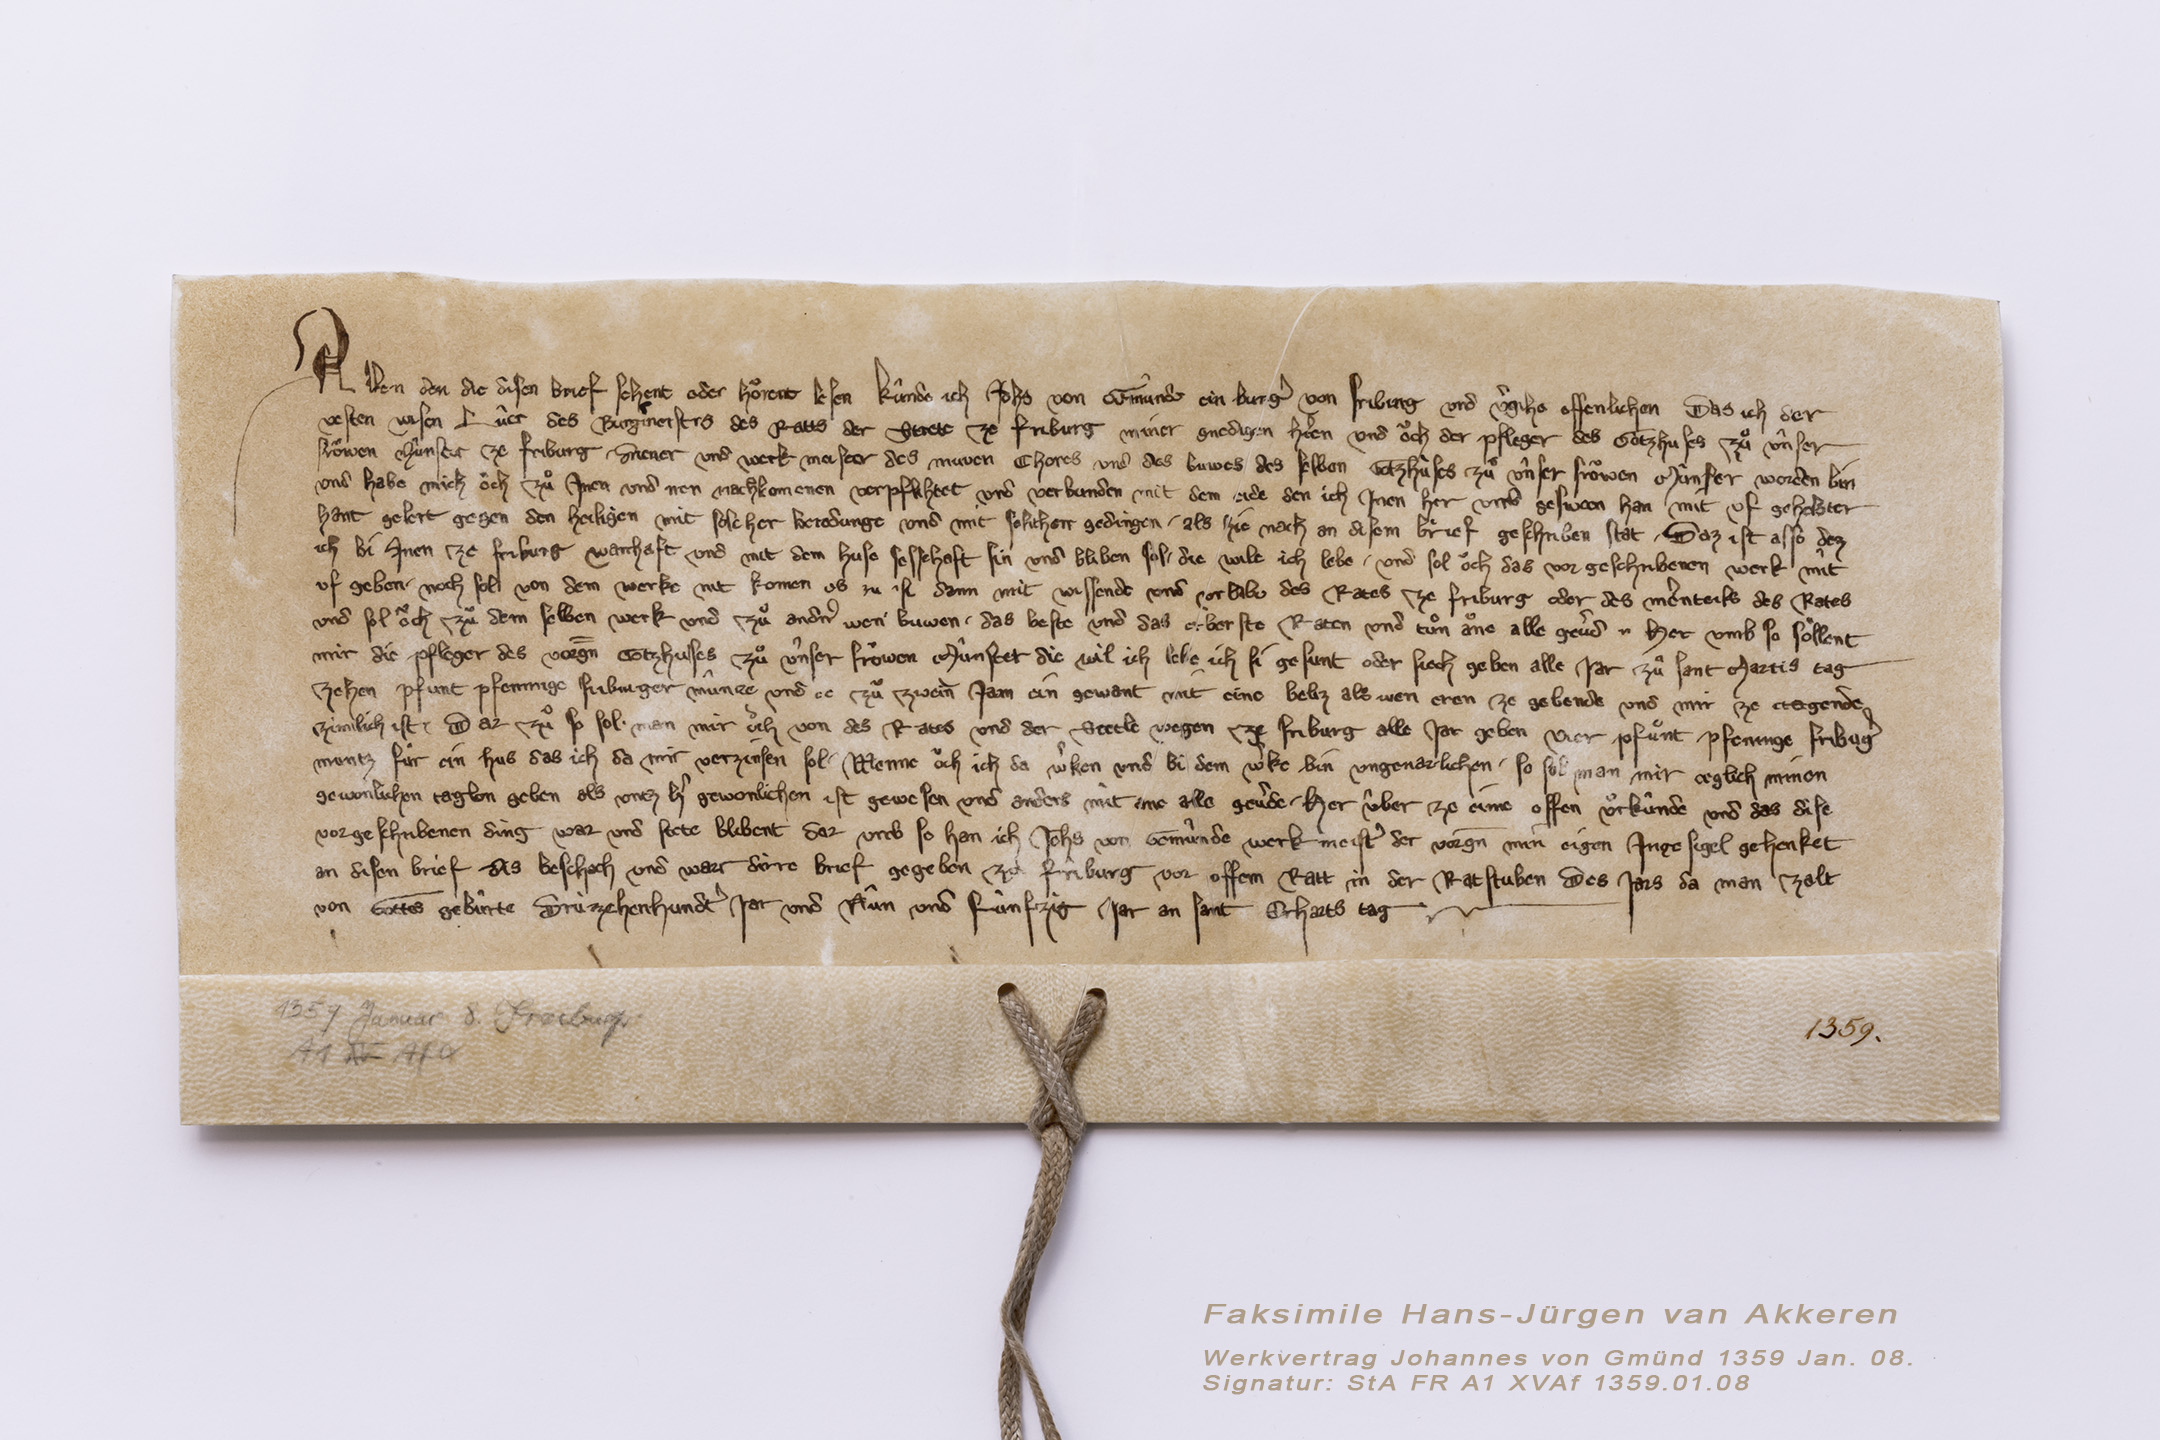 Allen den die disen brief sehent oder hoͤrent lesen kûnde ich Johs von Gmûnde ein burg̉ von friburg vnd v̉gihe offenlichen Das ich der
vesten wisen Lûte des Burgmeisters des Ratts der Stette ze friburg miner gnedigen hr̉en vnd oͤch der pfleger des Gotzhuses zuͦ vnser
froͮwen Mûnster ze friburg diener vnd werk meister des nuwen Chores vnd des buwes des selben Gotzhuses zuͦ vnser froͮwen Mûnster worden bin
vnd habe mich oͤch zuͦ Jnen vnd nachkomenen verpflichtet vnd verbunden mit dem eide den ich Jnen her vmb gesworn han mit vf gehebter
hant gelert gegen den heiligen mit solcher beredunge vnd mit solichen gedingen als hie nach an disem brief geschriben stat Daz ist also dez
ich bi Jnen ze friburg warhaft vnd mit dem huse sesshaft sin vnd bliben sol die wile ich lebe vnd sol oͤch das vorgeschribenen werk nit
vf geben noch sol von dem werke nit komen es si dann mit wissende vnd vrlobe des Rates ze friburg oder des merenteils des Rates
vnd sol oͤch zuͦ dem selben werk vnd zuͦ andern buwen das beste vnd das erberste Raten vnd tuͦn ane alle gev̉d Her vmb so soͤllent
mir die pfleger des vorgn Gotzhuses zuͦ vnser froͮwen Mûnster die wil ich lebe ich si gesunt oder siech geben alle Jar zuͦ sant Martis tag
zehen pfunt pfenninge friburger mûnze vnd ie zuͦ zwein Jarn ein gewant mit eine beltz als wen eren ze gebende vnd mir ze tragende
zimlich ist Dar zuͦ so sol man mir oͤch von des Rates vnd der Stette wegen ze friburg alle Jar geben vier pfunt pfenninge fribug̉
muntz fuͤr ein hus das ich da mir verzinsen sol Wenne oͤch ich da w̉ken vnd bi dem w̉ke bin vngenarlichen so sol man mir teglich minen
gewonlichen taglon geben als vntz h̉ gewonlichen ist gewesen vnd anders nit ane alle gev̉de Her vber ze eime offen vrkûnde vnd das dise
vorgeschribenen ding war vnd stete blibent dar vmb so han ich Johs von Gemûnde werkmeist̉ der vorgn min eigen Jngesigel gehenket
an disen brief dis beschach vnd wart dirre brief gegeben ze friburg vor offem Ratt in der Ratstuben Des Jars da man zalt
von Gottes gebûrte Drûzehenhundt̉ Jar vnd Nûn vnd fûnfzig Jar an sant Erharts tag
1359 Januar 8. Freiburg
1359.
Faksimile Hans-Jürgen van Akkeren
Werkvertrag Johannes von Gmünd 1359 Jan. 08.
Signatur: StA FR A1 XVAf 1359.01.08